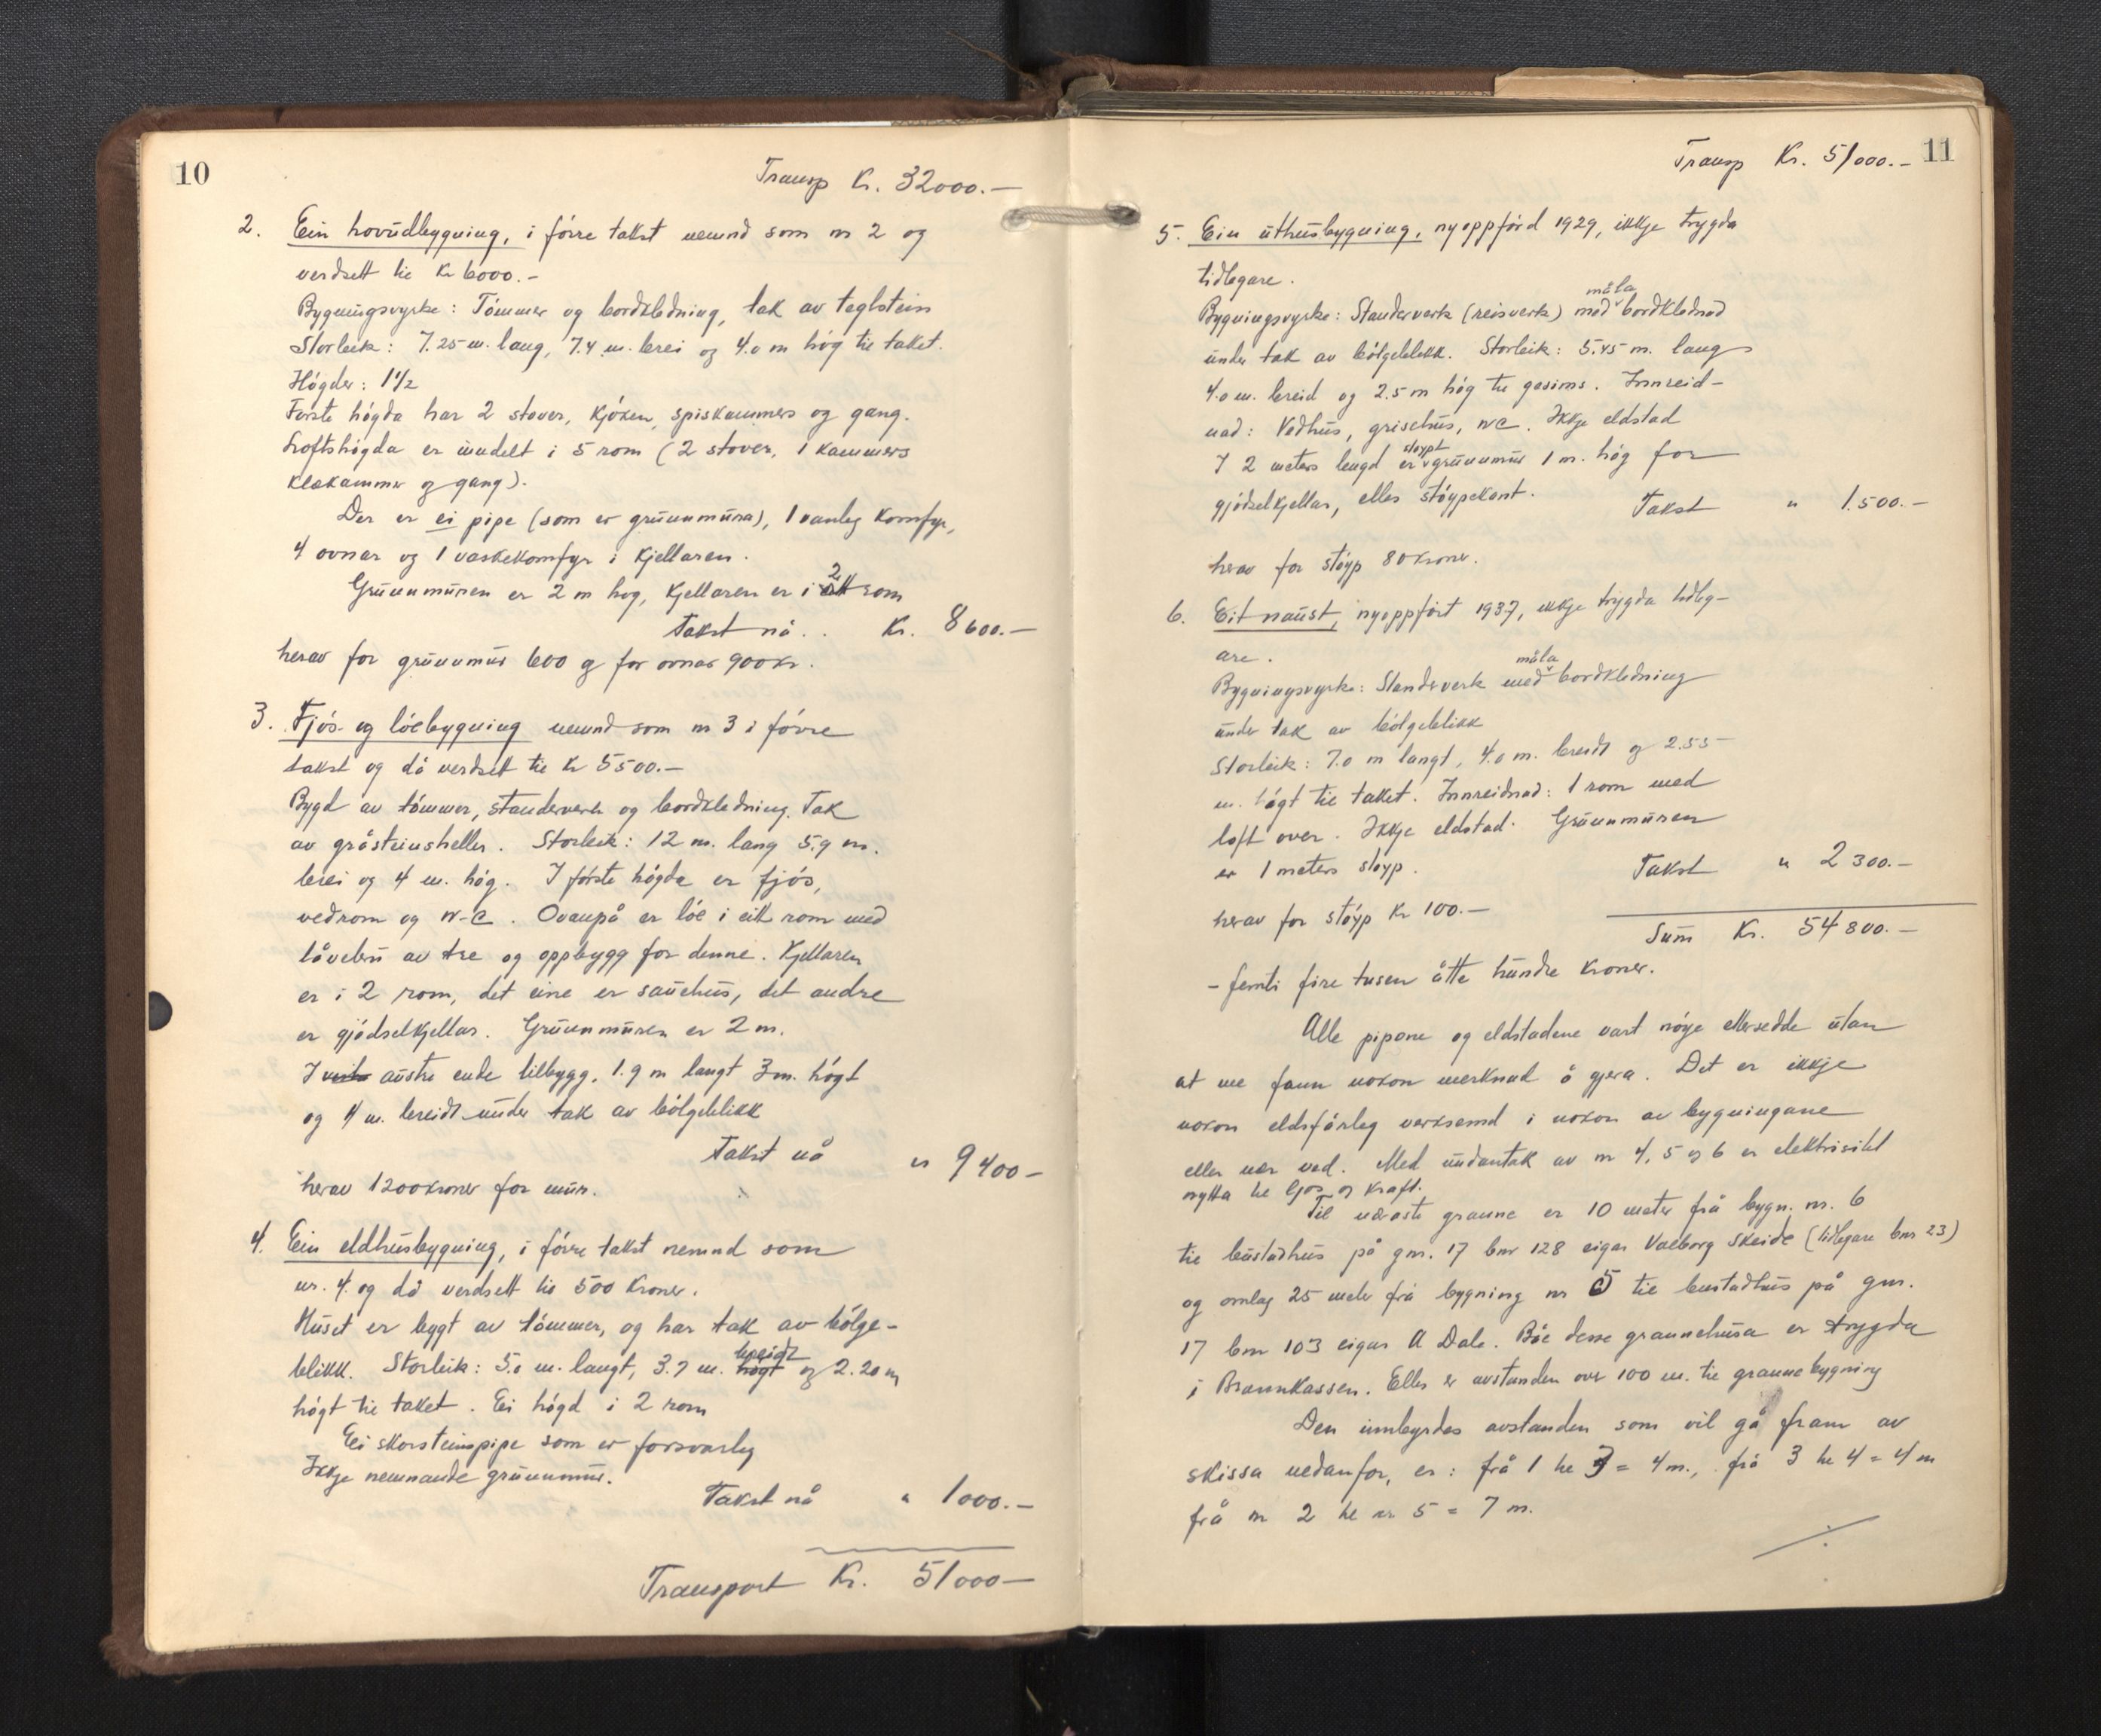 10
Transp Kr. 32000.—
2. Ein hovudbygning, i förre takst nemnd som nr 2 og
verdsett til Kr 6000.-
Bygningsvyrke: Tömmer og bordkledning, tak av teglstein
Storleik: 7.25 m. lang, 7.4 m. brei og 4.0 m hög til taket.
Högder: 1 1/2
Förste högda har 2 stover, kjöken, spiskammers og gang.
Loftshögda er inndelt i 5 rom (2 stover, 1 kammers
klekammer og gang).
Der er ei pipe (som er grunnmura), 1 vanleg komfyr,
4 ovnar og 1 vaskekomfyr i kjellaren.
Grunnmuren er 2 m hog, kjellaren er i 2 rom
Takst nå . . Kr. 8600.—
herav for grunnmur 600 og for ovnar 900 kr.
3. Fjös- og löebygning nemnd som nr 3 i förre
takst og då verdsett til Kr 5500.—
Bygd av tömmer, standerverk og bordkledning. Tak
av gråsteinsheller. Storleik: 12 m. lang 5.9 m.
brei og 4 m. hög. I förste högda er fjös,
vedrom og W-C. Ovanpå er löe i eitt rom med
låvebru av tre og oppbygg for denne. Kjellaren
er i 2 rom, det eine er sauehus, det andre
er gjödselkjellar. Grunnmuren er 2 m.
I austre ende tilbygg, 1.9 m langt 3 m. högt
og 4 m. breidt under tak av bölgeblikk
Takst nå " 9400 —
herav 1200 kroner for mur.
4. Ein eldhusbygning, i förre takst nemnd som
nr. 4. og då verdsett til 500 Kroner.
Huset er bygt av tömmer, og har tak av bölge-
breidt
blikk. Storleik: 5.0 m. langt, 3.7 m. högt og 2.20 m
högt til taket. Ei högd i 2 rom
Ei skorsteinspipe som er forsvarleg
Ikkje nemnande grunnmur.
Takst nå " 1000.—
Transport Kr. 51000—
11
Transp Kr. 51000.—
5. Ein uthusbygning, nyoppförd 1929, ikkje trygda
tidlegare.
måla
Bygningsvyrke: Standerverk (reisverk) med bordklednad
under tak av bölgeblikk. Storleik: 5.45 m. lang
4.0 m. breid og 2.5 m hög til gesims. Innreid-
nad: Vedhus, grisehus, WC. Ikkje eldstad
stöypt
I 2 meters lengd er grunnmur 1 m. hög for
gjödselkjellar, elles stöypekant.
Takst " 1.500.—
herav for stöyp 80 kroner.
6. Eit naust, nyoppfört 1937, ikkje trygda tidleg-
are.
måla
Bygningsvyrke: Standerverk med bordkledning
under tak av bölgeblikk
Storleik: 7.0 m langt, 4.0 m. breidt og 2.55
m. högt til taket. Innreidnad: 1 rom med
loft over. Ikkje eldstad. Grunnmuren
er 1 meters stöyp.
Takst " 2300.—
herav for stöyp Kr 100.—
Sum Kr. 54800.—
- femti fire tusen åtte hundre kroner.
Alle pipone og eldstadene vart nöye ettersedde utan
at me fann nokon merknad å gjera. Det er ikkje
nokon eldsfårleg verksemd i nokon av bygningane
eller nær ved. Med undantak av nr 4, 5 og 6 er elektrisitet
nytta til ljos og kraft.
Til næraste granne er 10 meter frå bygn. nr. 6
til bustadhus på gnr. 17 bnr 128 eigar Valborg Skeide (tidlegare bnr 23)
og omlag 25 meter frå bygning nr 5 til bustadhus på gnr.
17 bnr 103 eigar A Dale. Båe desse grannehusa er trygda
i Brannkassen. Elles er avstanden over 100 m. til grannebygning
Den innbyrdes avstanden som vil gå fram av
skissa nedanfor, er: frå 1 til 3 = 4 m., frå 3 til 4 = 4 m
frå nr 2 til nr 5 = 7 m.